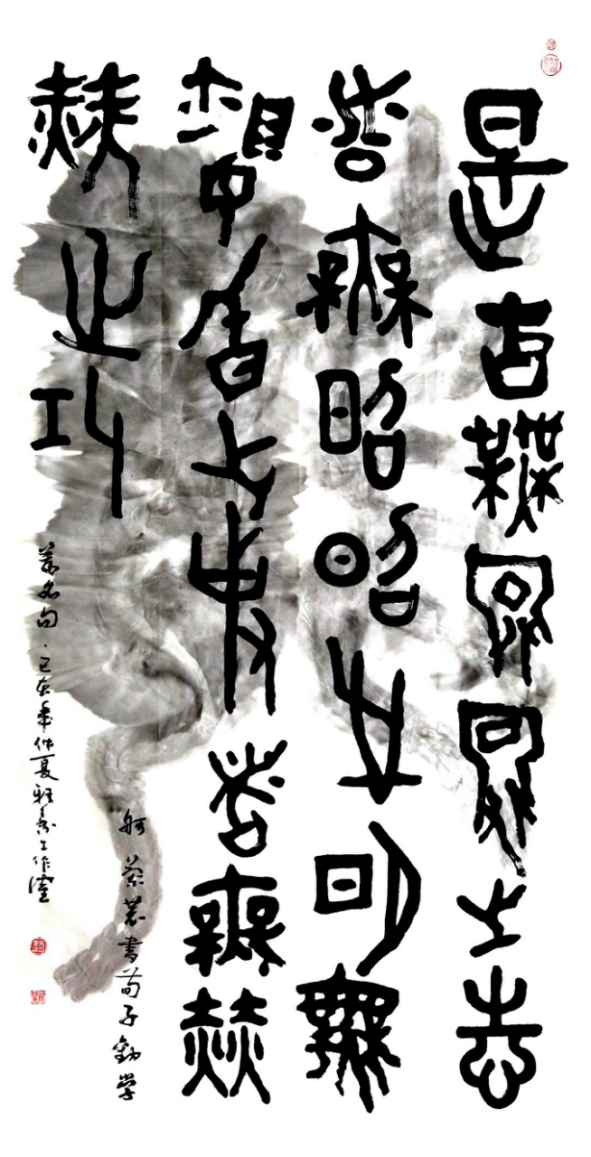 是古無冥冥之志
者無昭昭之明無
惛惛之事者無赫
赫之功
舸 書荀子勸學
篇名句 己亥年仲夏 工作室